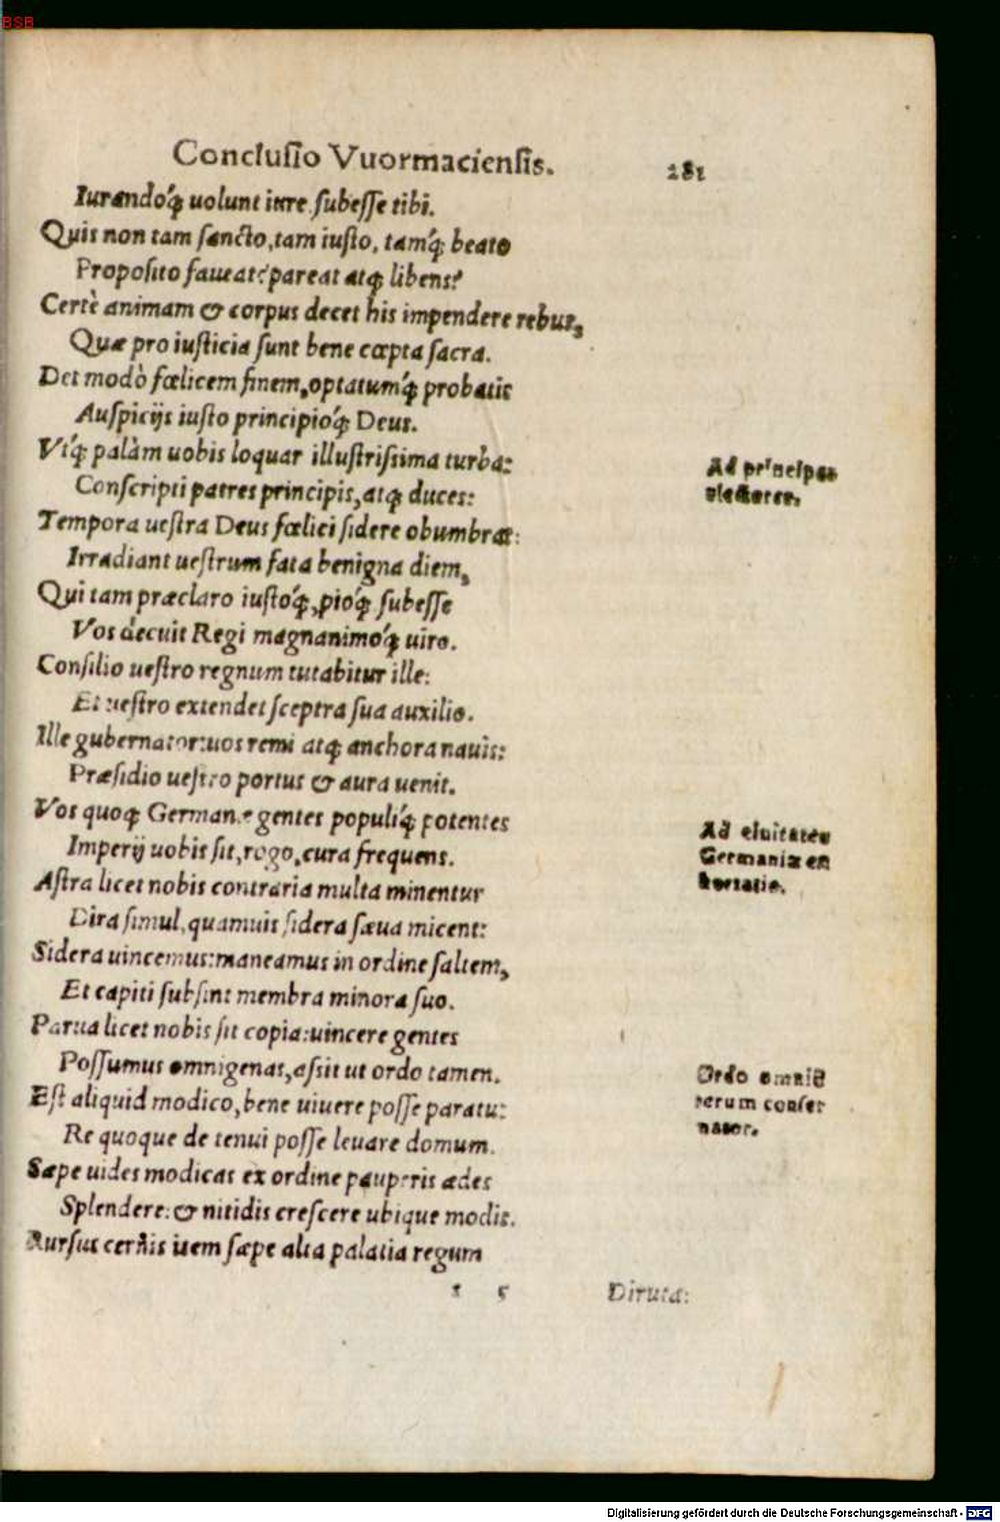 BSB
Conclusio Vuormaciensis.
281
Iurandoq́; uolunt iure subesse tibi.
Quis non tam sancto, tam iusto, tamq́; beato
Proposito faueat? pareat atq; libens?
Certè animam & corpus decet his impendere rebus,
Quæ pro iusticia sunt bene cœpta sacra.
Det modò fœlicem finem, optatumq́; probatis
Auspicijs iusto principioq́; Deus.
Vtq́; palàm uobis loquar illustrissima turba:
Ad principes
Conscripti patres principis, atq; duces:
electores.
Tempora uestra Deus fœlici sidere obumbrat:
Irradiant uestrum fata benigna diem,
Qui tam præclaro iustoq́;, pioq́; subesse
Vos decuit Regi magnanimoq́; uiro.
Consilio uestro regnum tutabitur ille:
Et uestro extendet sceptra sua auxilio.
Ille gubernator: uos remi atq; anchora nauis:
Præsidio uestro portus & aura uenit.
Vos quoq; Germanæ gentes populiq́; potentes
Ad ciuitates
Imperij uobis sit, rogo, cura frequens.
Germaniæ ex
Astra licet nobis contraria multa minentur
hortatio.
Dira simul, quamuis sidera sæua micent:
Sidera uincemus: maneamus in ordine saltem,
Et capiti subsint membra minora suo.
Parua licet nobis sit copia: uincere gentes
Possumus omnigenas, assit ut ordo tamen.
Ordo omniũ
Est aliquid modico, bene uiuere posse paratu:
rerum conser
Re quoque de tenui posse leuare domum.
uator.
Sæpe uides modicas ex ordine pauperis ædes
Splendere: & nitidis crescere ubique modis.
Rursus cernis item sæpe alta palatia regum
5
Diruta:
Digitalisierung gefördert durch die Deutsche Forschungsgemeinschaft - DFG